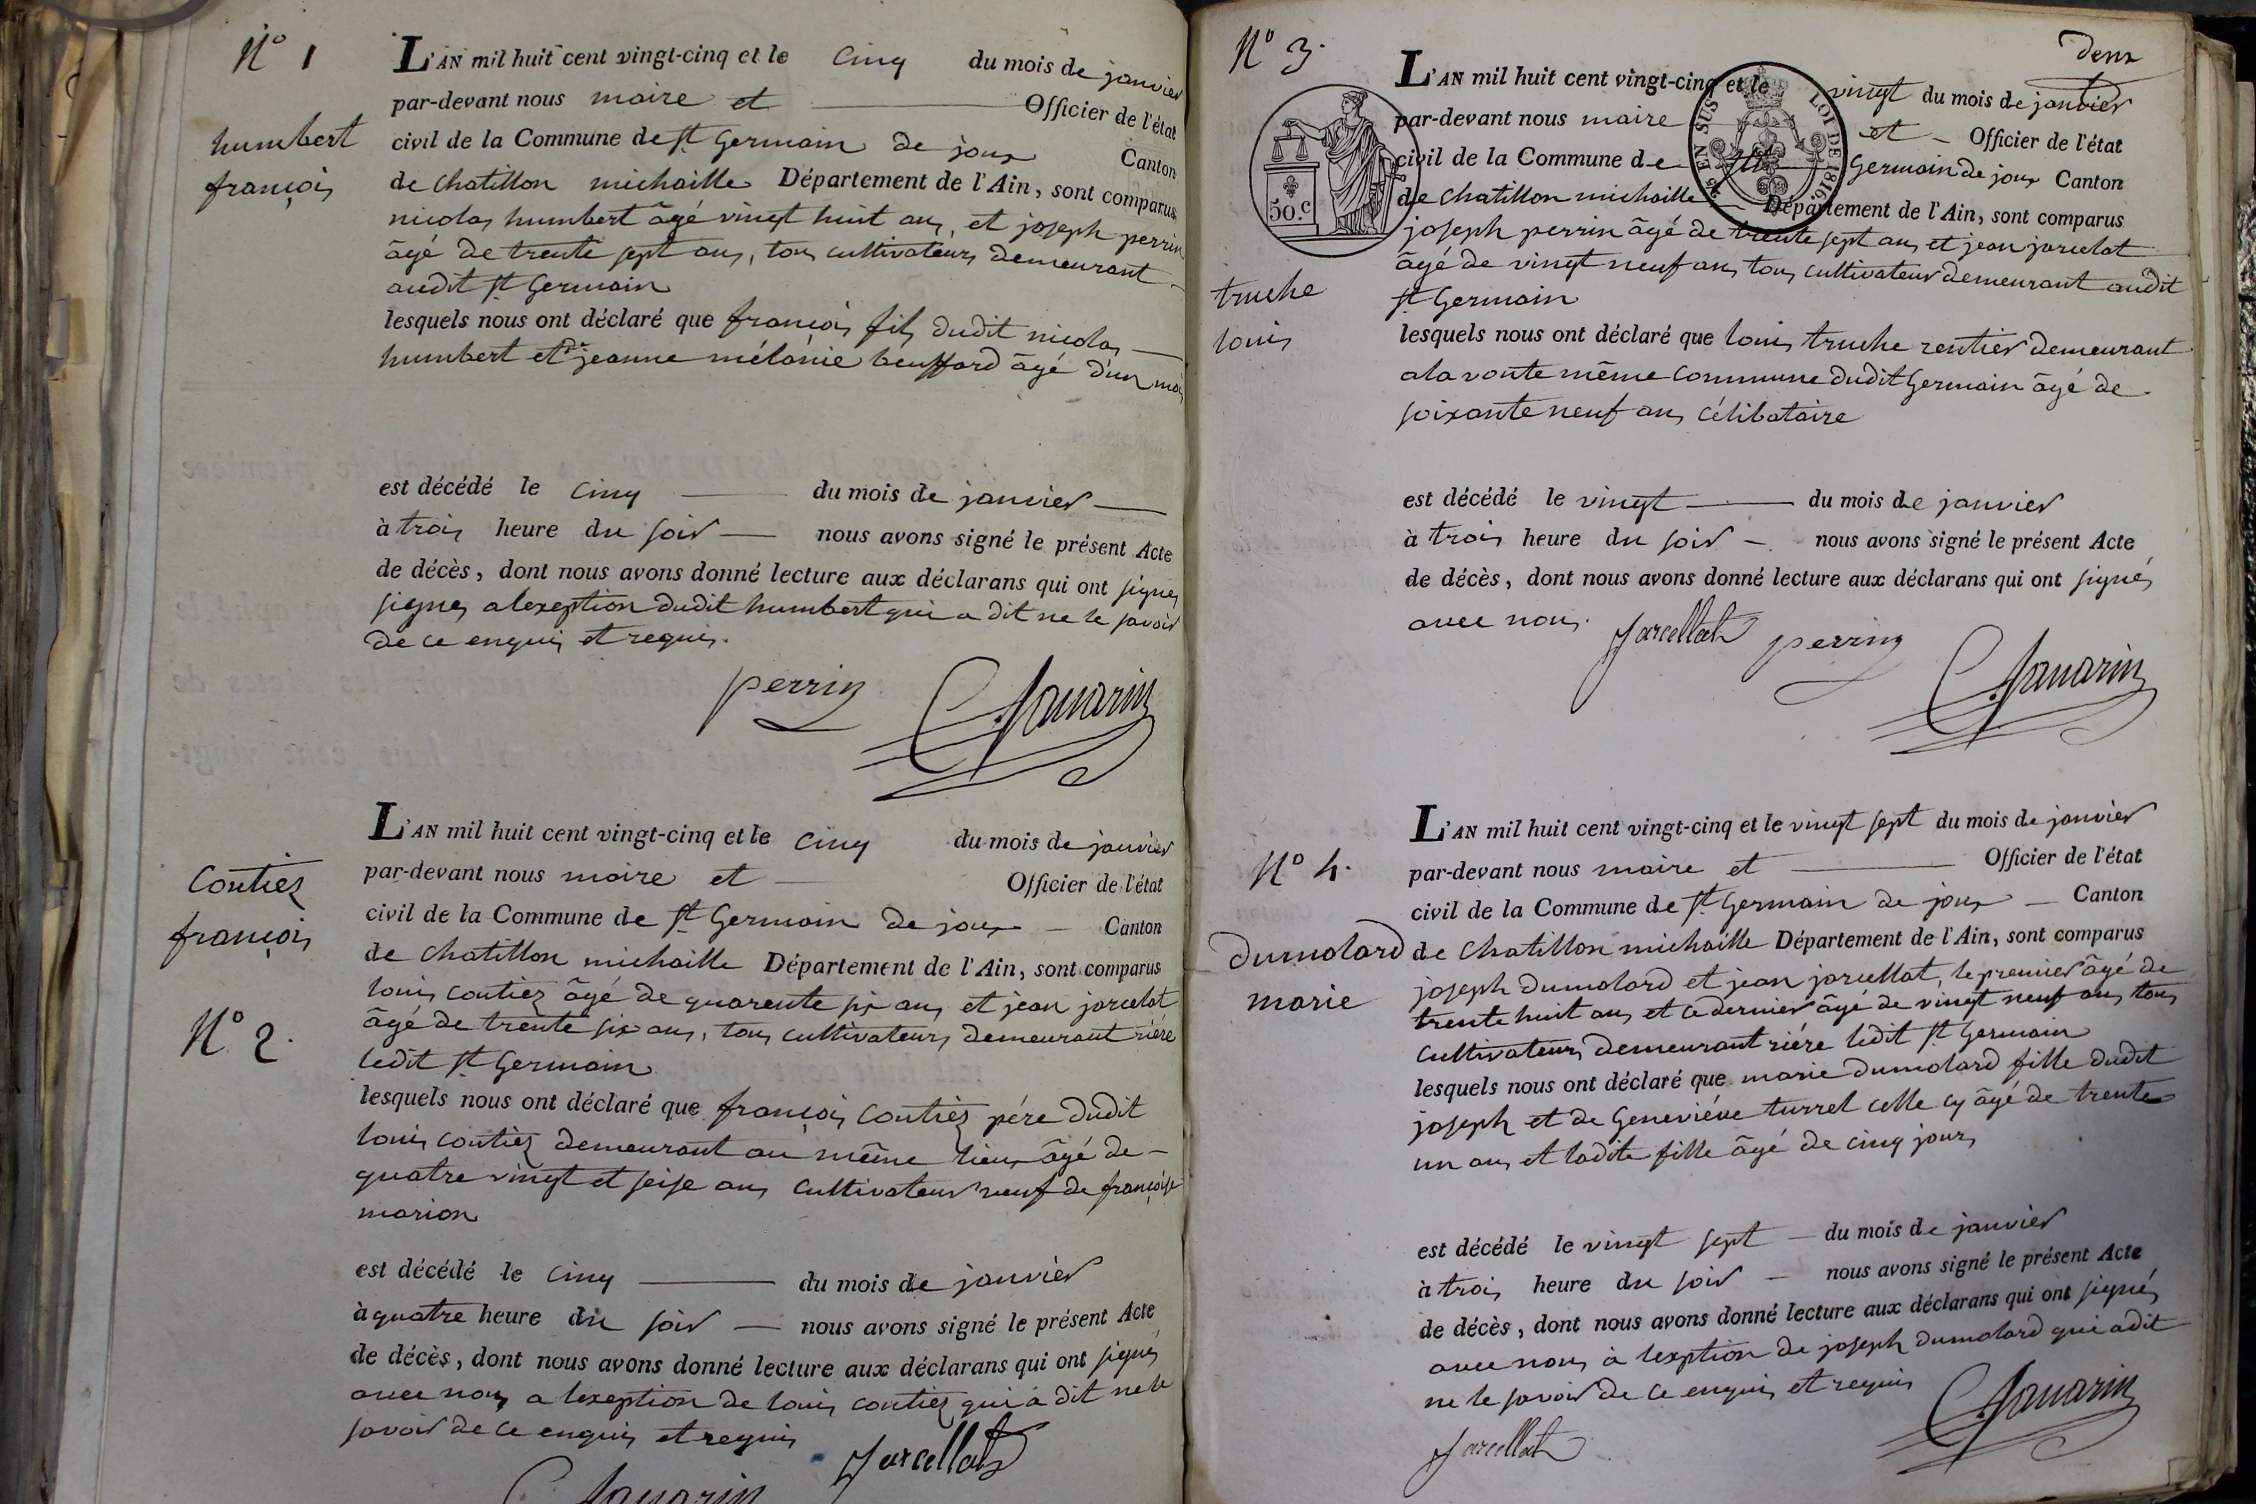 N° 1
humbert
françois
L'AN mil huit cent vingt-cinq et le cinq du mois de janvier
par-devant nous maire et Officier de l'état
civil de la Commune de st Germain de joux Canton
de chatillon michaille Département de l'Ain, sont comparus
nicolas humbert âgé vingt huit ans, et joseph perrin
âgé de trente sept ans, tous cultivateurs demeurant
audit st Germain
lesquels nous ont déclaré que françois fils dudit nicolas
humbert et de jeanne mélanie beuffard âgé d'un mois
est décédé le cinq du mois de janvier
à trois heure du soir nous avons signé le présent Acte
de décès, dont nous avons donné lecture aux déclarans qui ont signés
signés a lexeption dudit humbert qui a dit ne le savoir
de ce enquis et requis.
perrin
C. Savarin
contiez
françois
N° 2.
L'AN mil huit cent vingt-cinq et le cinq du mois de janvier
par-devant nous maire et Officier de l'état
civil de la Commune de st Germain de joux Canton
de chatillon michaille Département de l'Ain, sont comparus
louis contiez âgé de quarente six ans et jean jarcelat
âgé de trente six ans, tous cultivateurs demeurant riére
ledit st Germain
lesquels nous ont déclaré que françois contiez pére dudit
louis contiez demeurant au même lieu âgé de
quatre vingt et seise ans cultivateur veuf de françoise
marion
est décédé le cinq du mois de janvier
à quatre heure du soir nous avons signé le présent Acte
de décès, dont nous avons donné lecture aux déclarans qui ont signés
avec nous a lexeption de louis contiez qui à dit ne le
savoir de ce enquis et requis
Jarcellat
C. Savarin
deux
N° 3.
50.c
EN SUS
LOI DE 1816
truche
louis
L'AN mil huit cent vingt-cinq et le vingt du mois de janvier
par-devant nous maire et Officier de l'état
civil de la Commune de st Germain de joux Canton
de chatillon michaille Département de l'Ain, sont comparus
joseph perrin âgé de trente sept ans et jean jarcelat
âgé de vingt neuf ans tous cultivateur demeurant audit
st Germain
lesquels nous ont déclaré que louis truche rentier demeurant
a la voute même commune dudit Germain âgé de
soixante neuf ans célibataire
est décédé le vingt du mois de janvier
à trois heure du soir nous avons signé le présent Acte
de décès, dont nous avons donné lecture aux déclarans qui ont signés
avec nous.
Jarcellat perrin
C. Savarin
N° 4.
Dumolard
marie
L'AN mil huit cent vingt-cinq et le vingt sept du mois de janvier
par-devant nous maire et Officier de l'état
civil de la Commune de st Germain de joux Canton
de chatillon michaille Département de l'Ain, sont comparus
joseph dumolard et jean jarcellat, le premier âgé de
trente huit ans et ce dernier âgé de vingt neuf ans tous
cultivateurs demeurant riére ledit st Germain
lesquels nous ont déclaré que marie dumolard fille dudit
joseph et de Geneviéve turrel celle cy âgé de trente
un ans et ladite fille âgé de cinq jours
est décédé le vingt sept du mois de janvier
à trois heure du soir nous avons signé le présent Acte
de décès, dont nous avons donné lecture aux déclarans qui ont signés
avec nous à lexption de joseph dumolard qui a dit
ne le savoir de ce enquis et requis
C. Savarin
Jarcellat